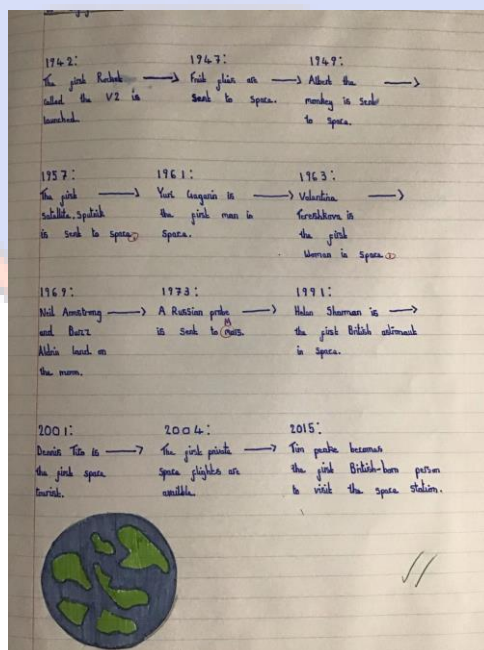 1942:
The first Rocket
called the V2 is
launched.
1947:
Fruit flies are
sent to space.
1949:
Albert the
monkey is sent
to space.
1957:
The first
satellite, Sputnik
is sent to space.
1961:
Yuri Gagarin is
the first man in
Space.
1963:
Valentina
Tereshkova is
the first
Woman in Space.
1969:
Neil Armstrong
and Buzz
Aldrin land on
the moon.
1973:
A Russian probe
is sent to mars.
1991:
Helen Sharman is
the first British astronaut
in Space.
2001:
Dennis Tito is
the first space
tourist.
2004:
The first private
space flights are
2015:
Tim peake becomes
the first British-born person
to visit the space station.